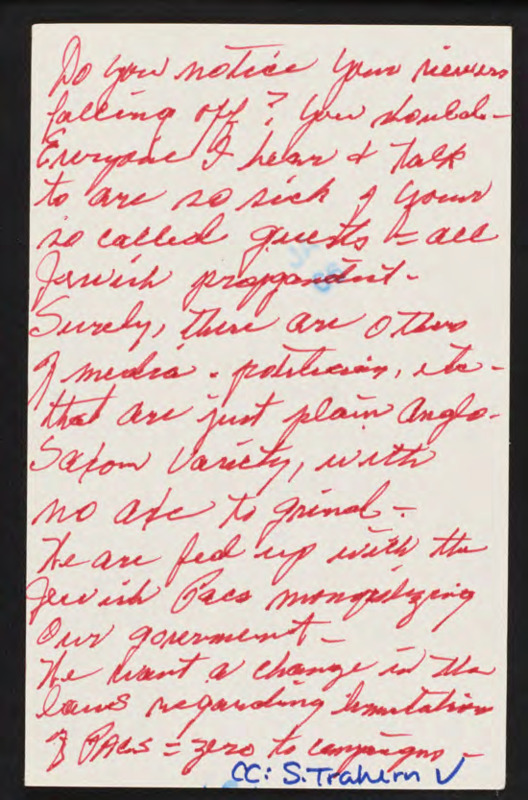 Do you notice your viewers
falling off? You should-
Everyone I hear & talk
to are so sick of your
so called guests - all
Jewish
Surely, there are others
of media - politician, etc -
that are just plain Anglo-
Saxon Variety, with
no axe to grind -
We are fed up with the
Jewish Pacs
Our goverment -
We want a change in the
laws regarding limitation
of PACs = zero to campaigns -
CC: S. Trahern ✓